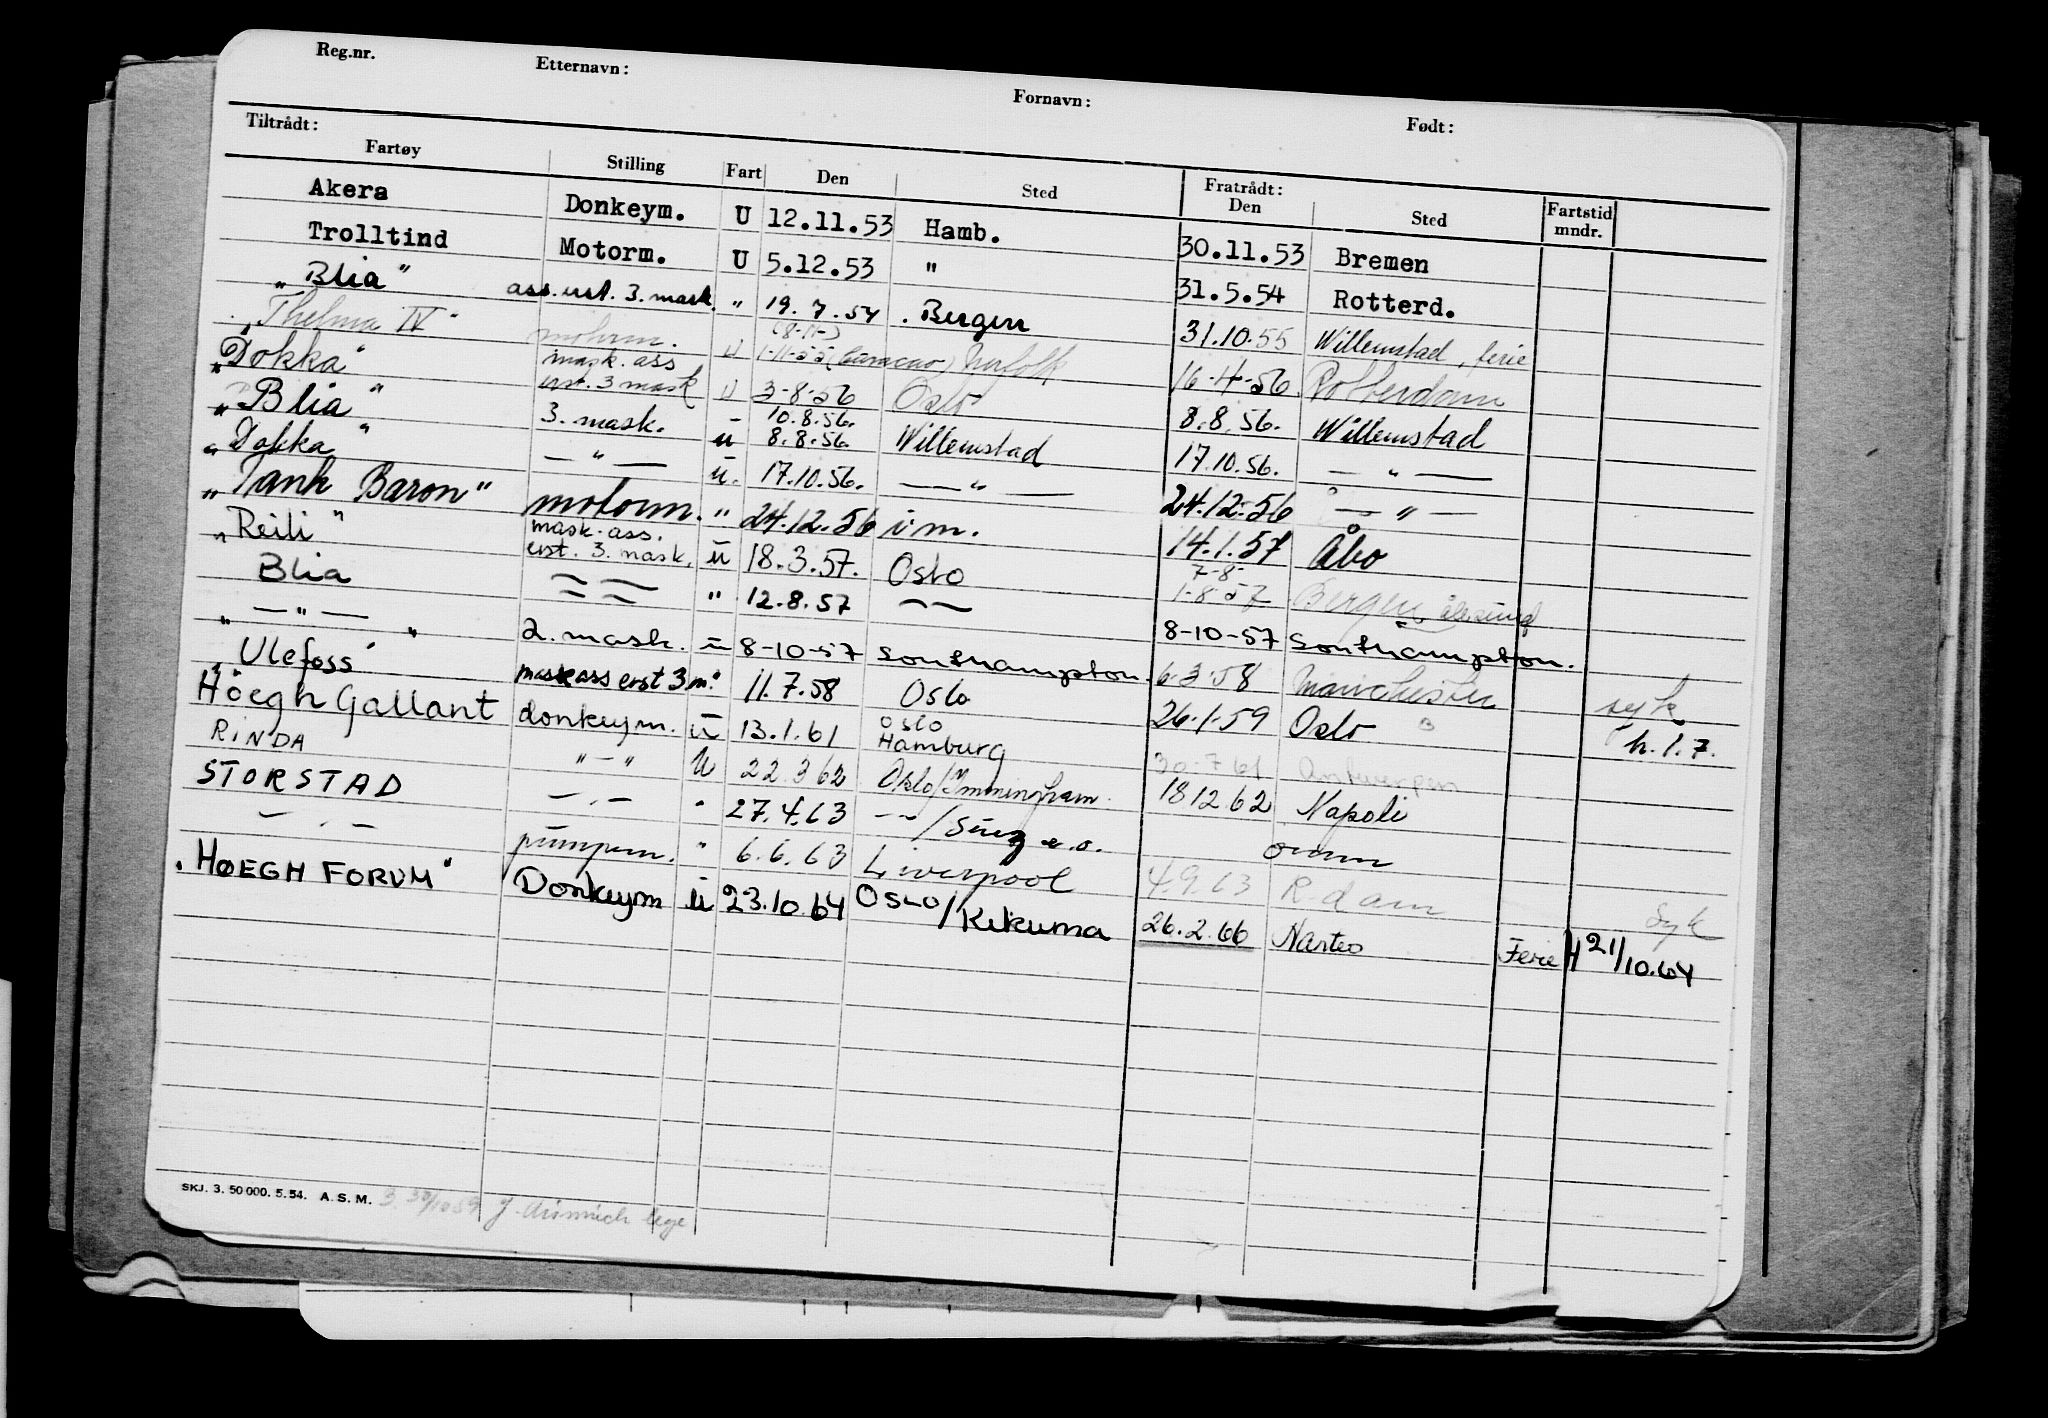 Reg.nr. Etternavn: Fornavn: Født:
Tiltrådt: Fratrådt:
Fartøy Stilling Fart Den Sted Den Sted Fartstid mndr.
Akera Donkeym. U 12.11.53 Hamb. 30.11.53 Bremen
Trolltind Motorm. U 5.12.53 " 31.5.54 Rotterd.
"Blia" ass. erst. 3. mask. " 19.7.54 Bergen 31.10.55 Willemstad, ferie
"Thelma IV" motorm. U (8-11-) 1-11-55 (Curacao) Norfolk 16-4-56 Rotterdam
"Dokka" mask. ass erst. 3 mask U 3-8-56 Oslo 8.8.56. Willemstad
"Blia" 3. mask. ü 10.8.56. 8.8.56. Willemstad 17.10.56. — " —
"Dokka" — " — ü. 17.10.56. — " — 24.12.56 — " —
"Tank Baron" motorm. " 24.12.56 i m. 14.1.57 Åbo
"Reili" mask. ass. erst. 3. mask. ü 18.3.57. Oslo 7-8- 1-8-57 Bergen Ålesund
Blia " 12.8.57 8-10-57 Southampton.
— " — 2. mask. ü 8-10-57 Southampton. 6-3-58 Manchester syk
"Ulefoss" mask ass erst 3 m. " 11.7.58 Oslo 26.1.59 Oslo h.l.7.
"Höegh Gallant donkeym. ü 13.1.61 Oslo Hamburg 30-7-61 Antwerpen
RINDA " - " U 22.3 62 Oslo/Immingham. 18 12 62 Napoli
STORSTAD — " — " 27.4.63 — " — / Suez e.o. omm
— " — pumpem. " 6.6.63 Liverpool 4.9.63 R.dam Syk
"HØEGH FORUM" Donkeym ü 23.10.64 OSLO/Kikuma 26.2.66 Ferie H 21/10.64
SKJ. 3. 50 000. 5. 54. A. S. M.